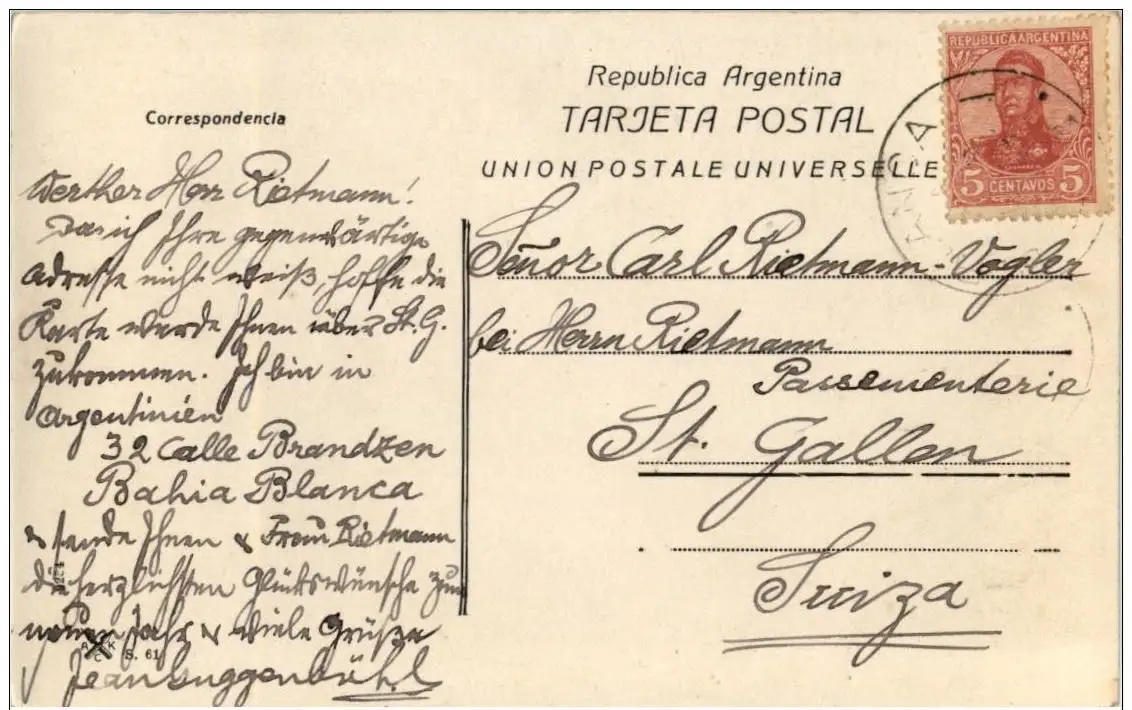 Republica Argentina
TARJETA POSTAL
UNION POSTALE UNIVERSELLE
REPUBLICA ARGENTINA
5 CENTAVOS 5
Correspondencia
Werther Herr Rietmann!
Da ich Ihre gegenwärtige
Adresse nicht weiß, hoffe die
Karte werde Ihnen über St. G.
zukommen. Ich bin in
Argentinien
32 Calle Brandzen
Bahia Blanca
& sende Ihnen & Frau Rietmann
die herzlichsten Glückswünsche zum
neuen Jahr & viele Grüße
Jean Guggenbühl
S. 61
Señor Carl Rietmann-Vogler
bei Herrn Rietmann
Passementerie
St. Gallen
Suiza